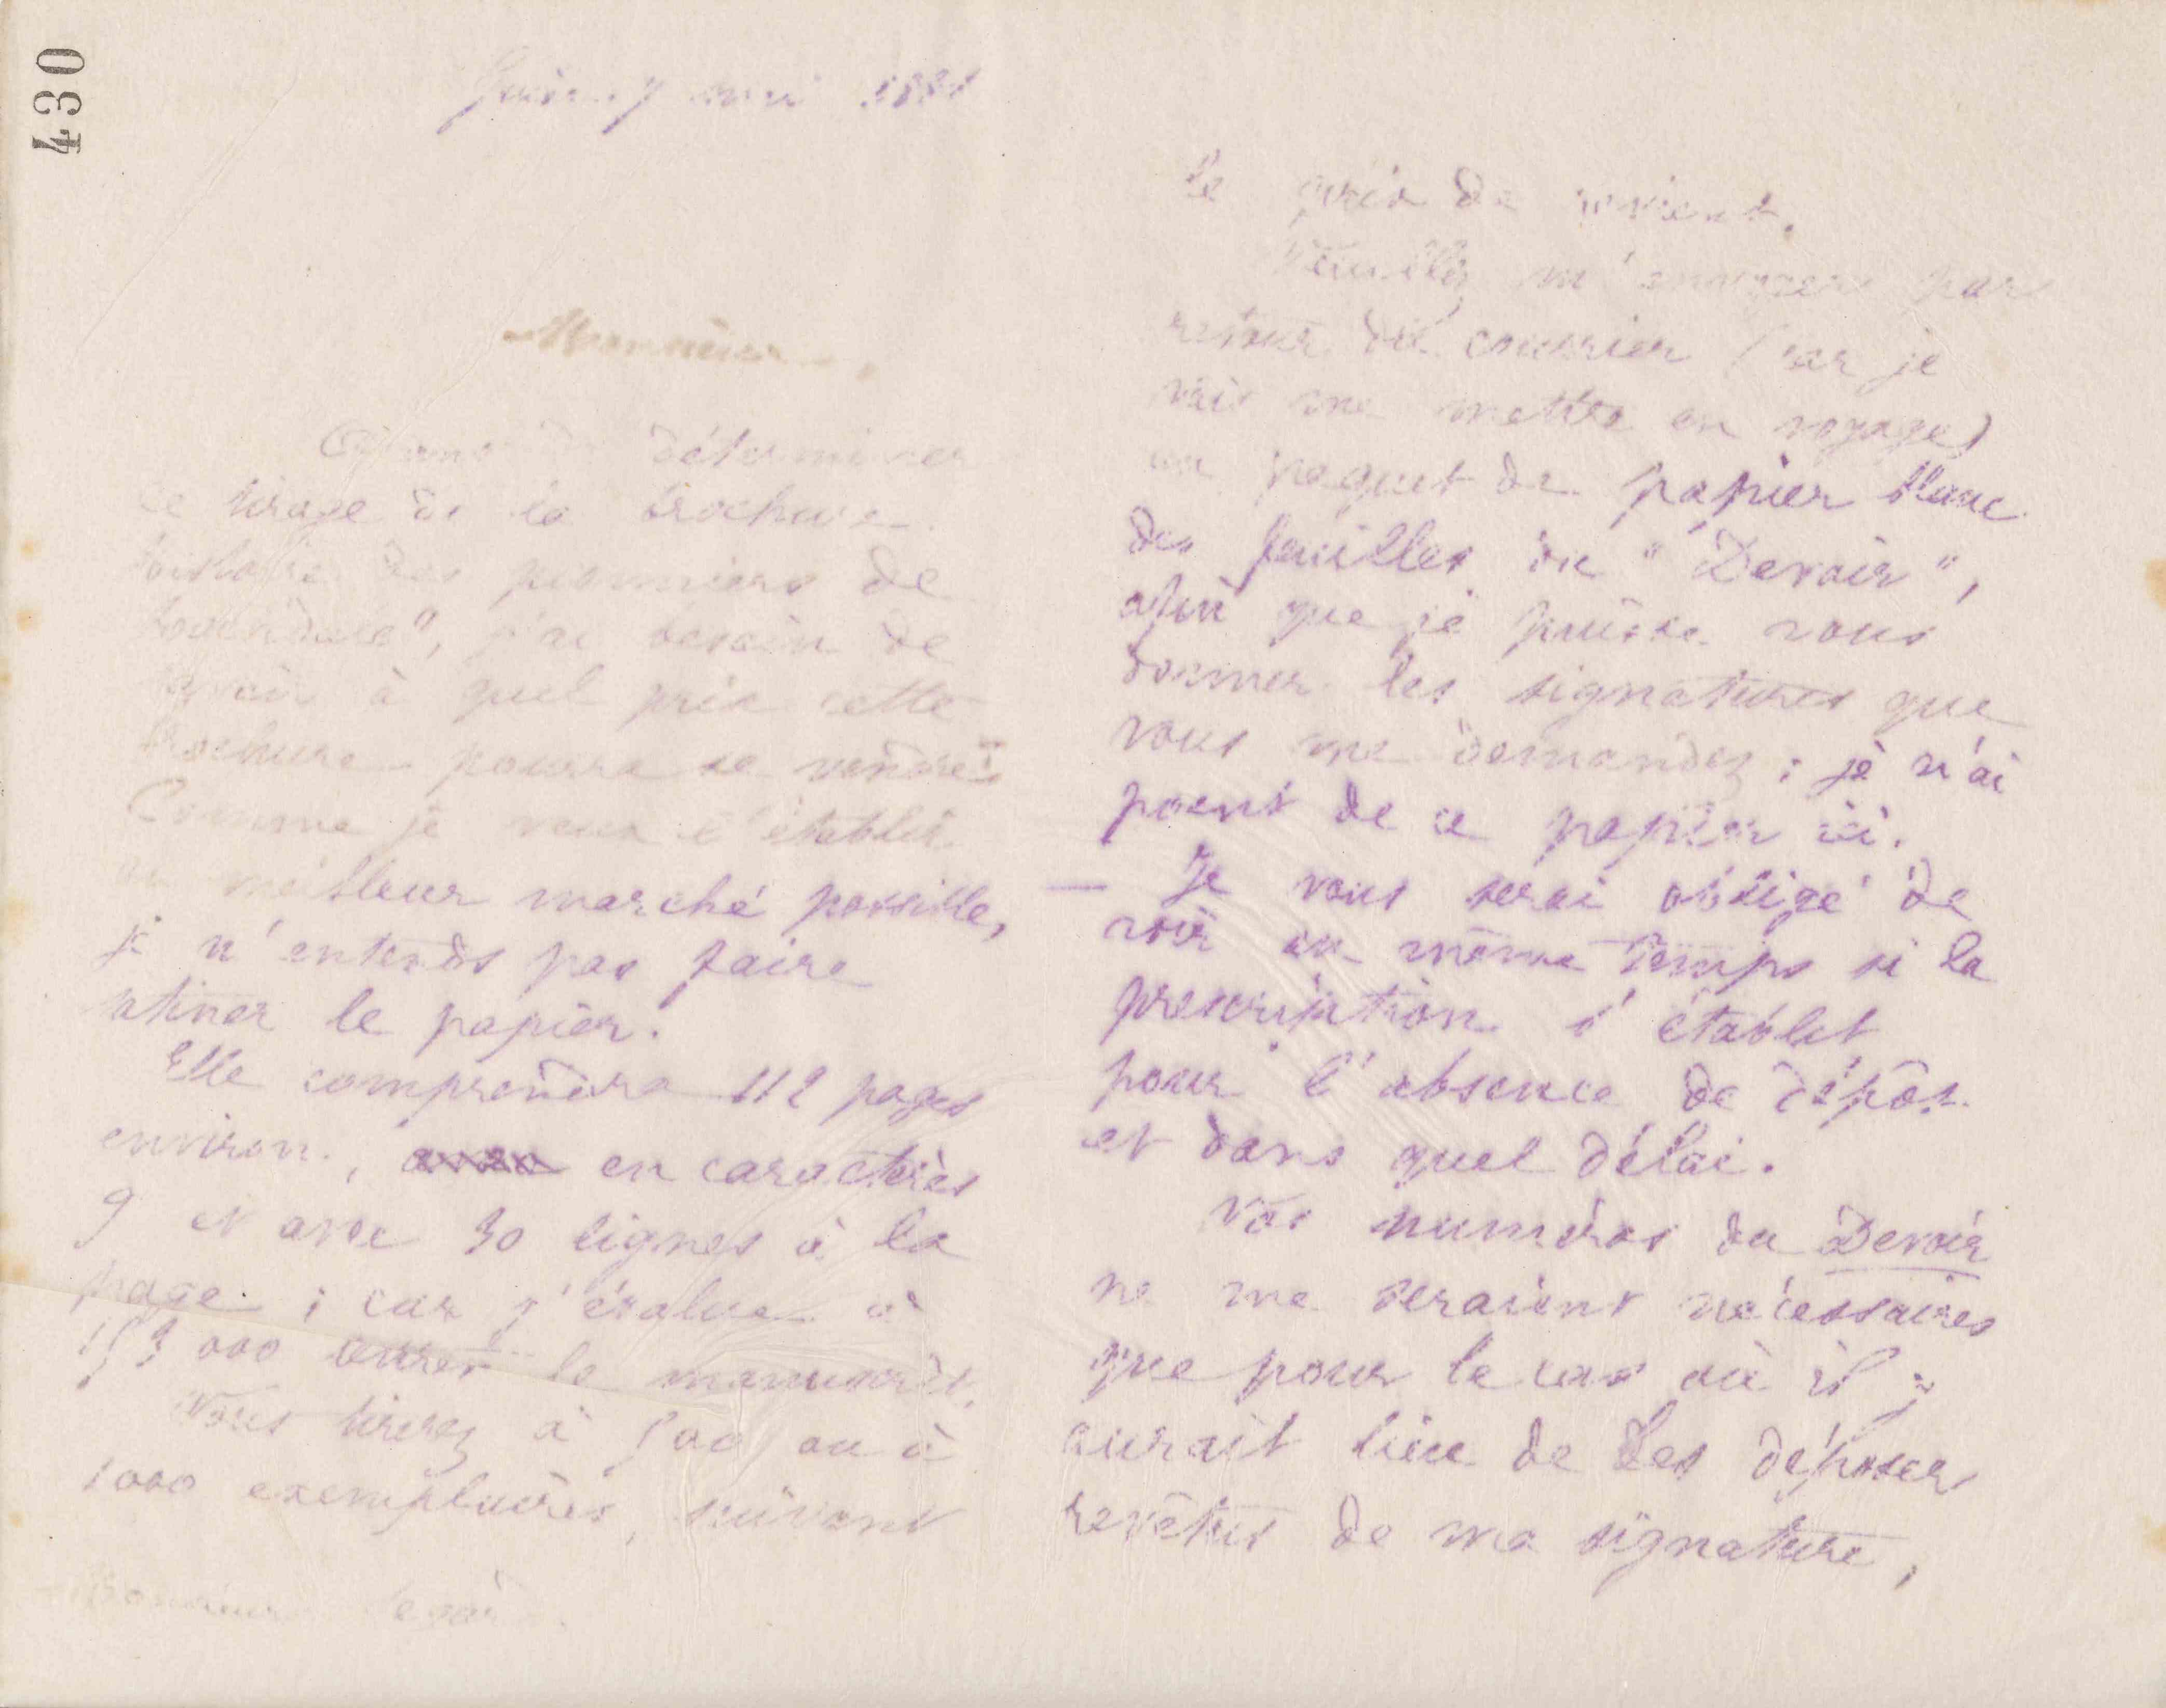 430
Guise 7 mai 1881
Monsieur,
Avant de déterminer
le tirage de la brochure
histoire des pionniers de
Rochdale", j'ai besoin de
savoir à quel prix cette
brochure pourra se vendre.
Comme je veux l'établir
au meilleur marché possible,
je n'entends pas faire
satiner le papier.
Elle comprendra 112 pages
environ, en caractères
9 et avec 30 lignes à la
page ; car j'évalue à
000 le manuscrit.
Vous tirerez à 500 ou à
1000 exemplaires, suivant
Monsieur
le prix de revient.
Veuillez m'envoyer par
retour du courrier (car je
vais me mettre en voyage)
un paquet de papier blanc
des feuilles du "Devoir",
afin que je puisse vous
donner les signatures que
vous me demandez ; je n'ai
point de ce papier ici.
— Je vous serai obligé de
voir en même temps si la
prescription s'établit
pour l'absence de dépôt
et dans quel délai.
Vos numéros du Devoir
ne me seraient nécessaires
que pour le cas où il y
aurait lieu de les déposer
revêtus de ma signature,